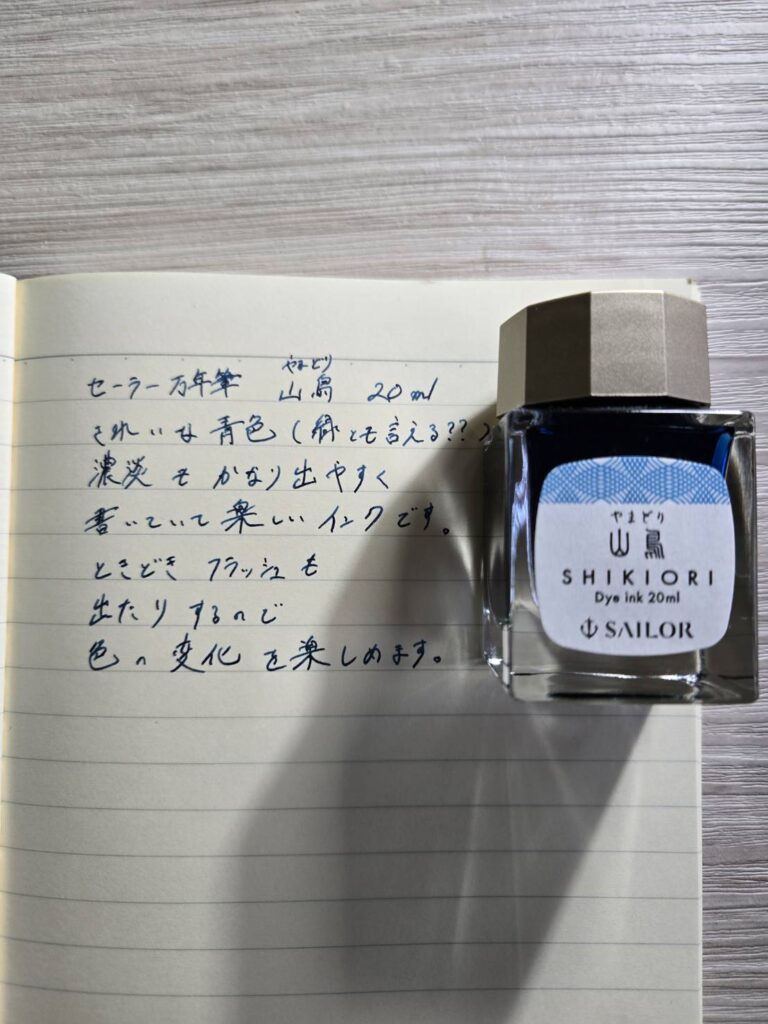 やまどり
セーラー万年筆 山鳥 20ml
きれいな青色(緑とも言える??)
濃淡もかなり出やすく
書いていて楽しいインクです。
ときどきフラッシュも
出たりするので
色の変化を楽しめます。
やまどり
山鳥
SHIKIORI
Dye ink 20ml
SAILOR